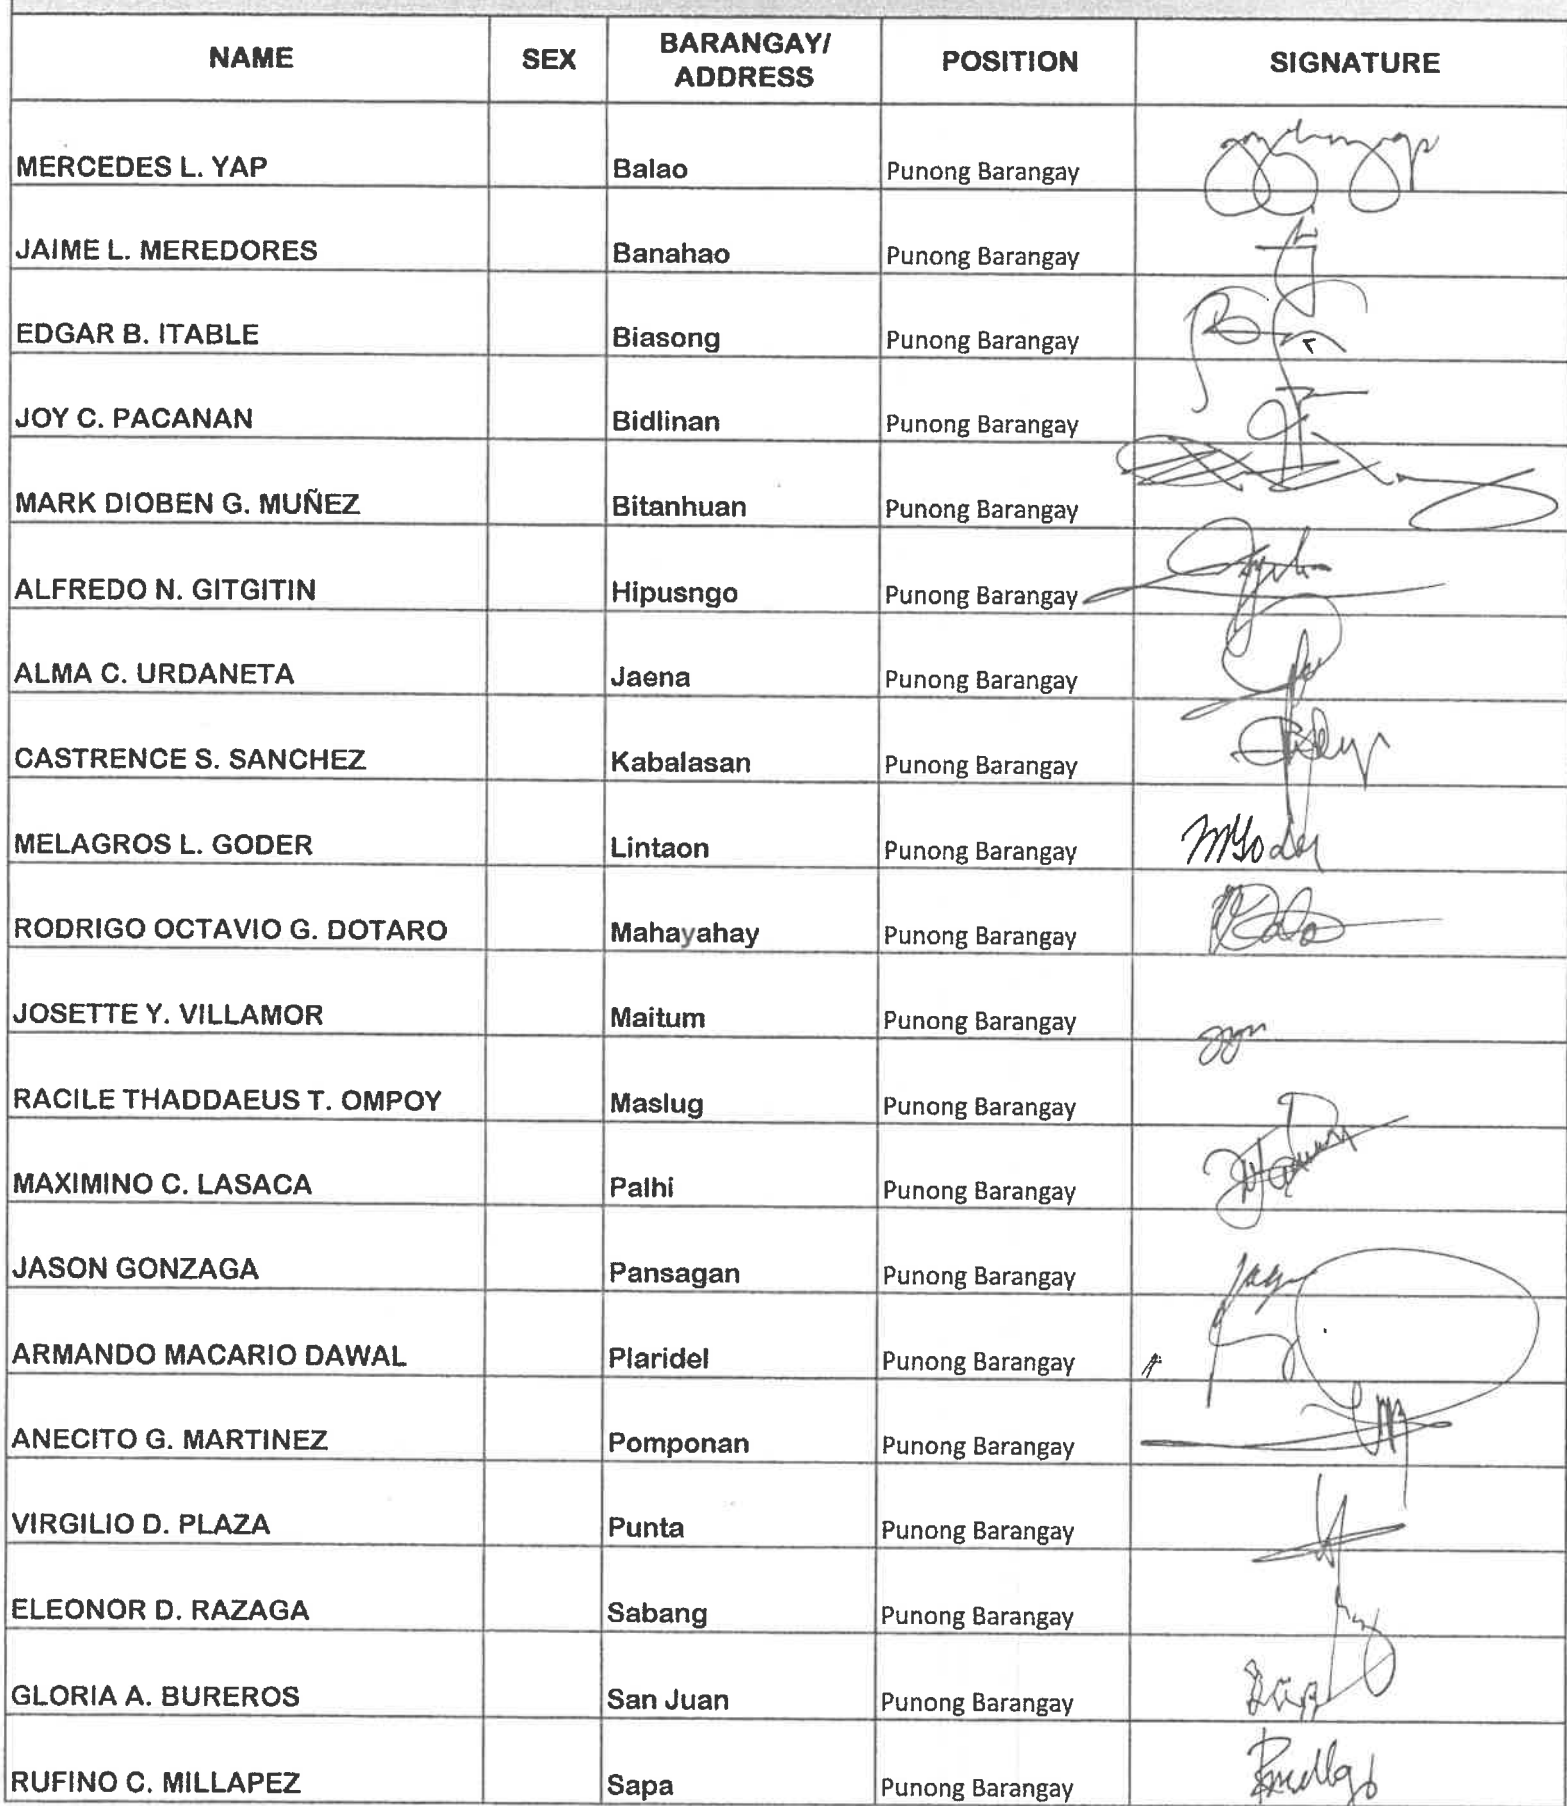 NAME SEX BARANGAY/ ADDRESS POSITION SIGNATURE
MERCEDES L. YAP Balao Punong Barangay
JAIME L. MEREDORES Banahao Punong Barangay
EDGAR B. ITABLE Biasong Punong Barangay
JOY C. PACANAN Bidlinan Punong Barangay
MARK DIOBEN G. MUÑEZ Bitanhuan Punong Barangay
ALFREDO N. GITGITIN Hipusngo Punong Barangay
ALMA C. URDANETA Jaena Punong Barangay
CASTRENCE S. SANCHEZ Kabalasan Punong Barangay
MELAGROS L. GODER Lintaon Punong Barangay
RODRIGO OCTAVIO G. DOTARO Mahayahay Punong Barangay
JOSETTE Y. VILLAMOR Maitum Punong Barangay
RACILE THADDAEUS T. OMPOY Maslug Punong Barangay
MAXIMINO C. LASACA Palhi Punong Barangay
JASON GONZAGA Pansagan Punong Barangay
ARMANDO MACARIO DAWAL Plaridel Punong Barangay
ANECITO G. MARTINEZ Pomponan Punong Barangay
VIRGILIO D. PLAZA Punta Punong Barangay
ELEONOR D. RAZAGA Sabang Punong Barangay
GLORIA A. BUREROS San Juan Punong Barangay
RUFINO C. MILLAPEZ Sapa Punong Barangay